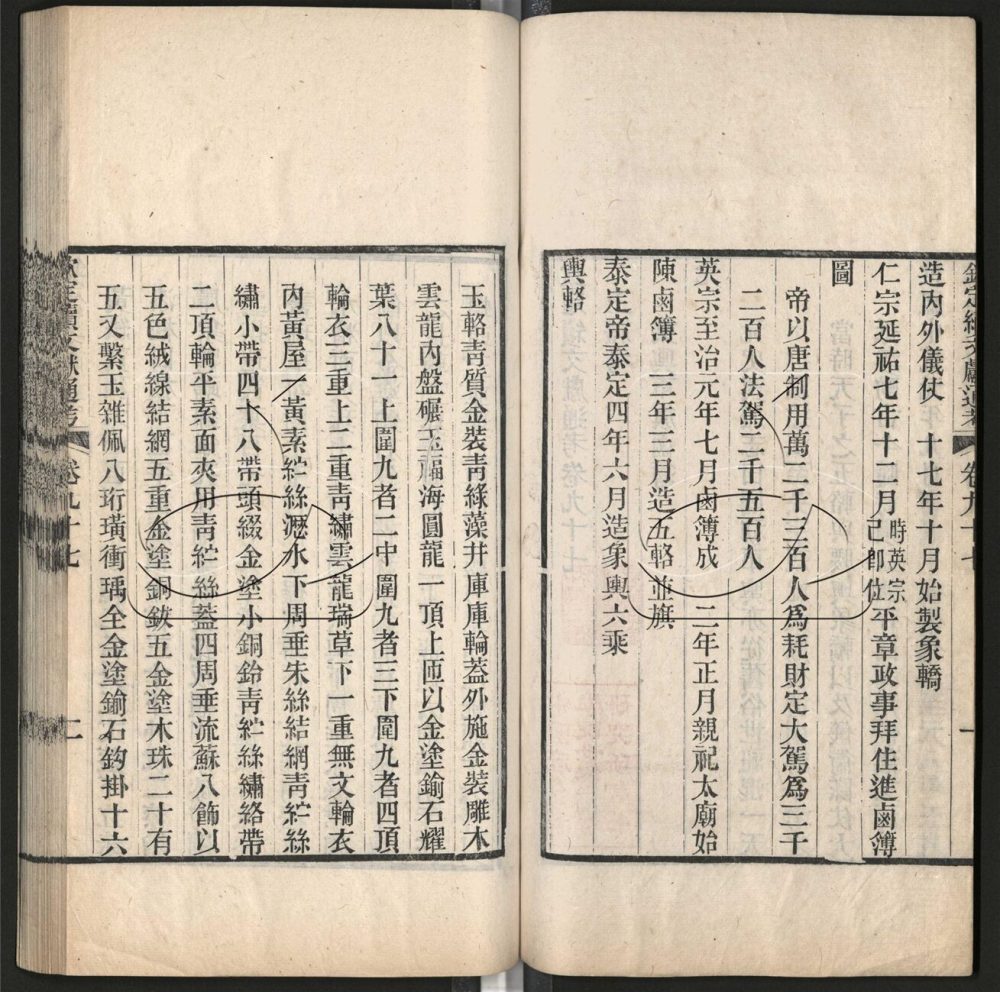 欽定續文獻通考 卷九十七 一
造內外儀仗 十七年十月始製象轎
仁宗延祐七年十二月時英宗已即位平章政事拜住進鹵簿
圖
帝以唐制用萬二千三百人爲耗財定大駕爲三千
二百人法駕二千五百人
英宗至治元年七月鹵簿成 二年正月親祀太廟始
陳鹵簿 三年三月造五輅並旗
泰定帝泰定四年六月造象輿六乘
輿輅
玉輅青質金裝青綠藻井庫庫輪蓋外施金裝雕木
雲龍內盤碾玉福海圓龍一頂上匝以金塗鍮石耀
葉八十一上圍九者二中圍九者三下圍九者四頂
輪衣三重上二重青繡雲龍瑞草下一重無文輪衣
內黃屋一黃素紵絲瀝水下周垂朱絲結網青紵絲
繡小帶四十八帶頭綴金塗小銅鈴青紵絲繡絡帶
二頂輪平素面夾用青紵絲蓋四周垂流蘇八飾以
五色絨線結網五重金塗銅鈸五金塗木珠二十有
五又繫玉雜佩八珩璜衝瑀全金塗鍮石鈎掛十六
欽定續文獻通考 卷九十七 二